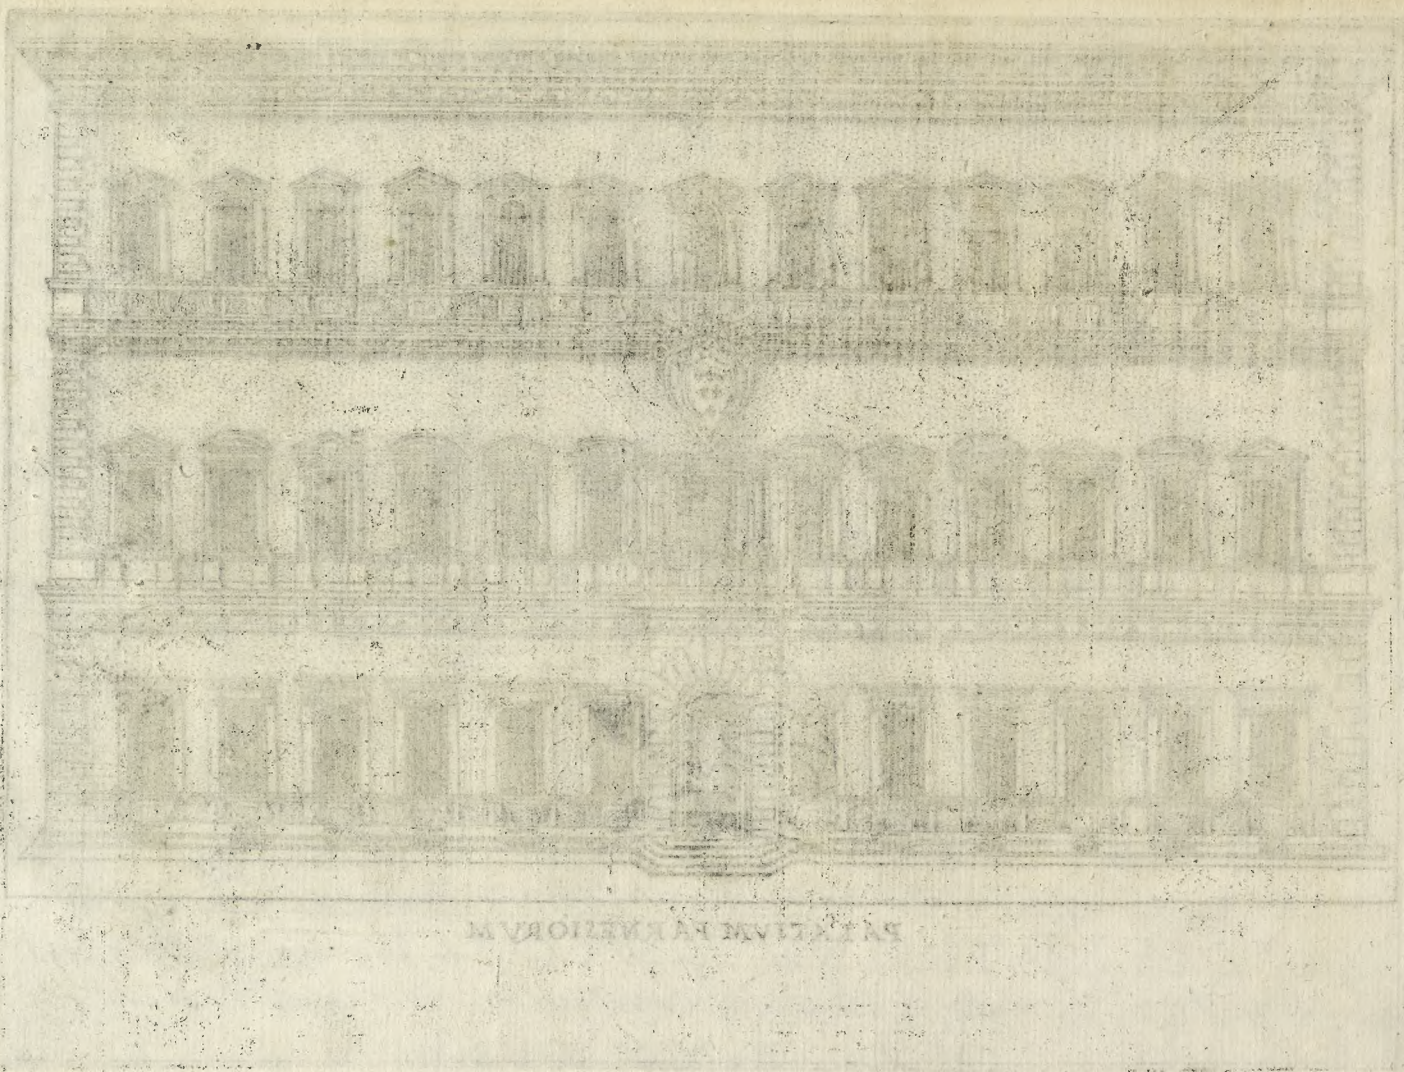 PALATIVM FARNESIORVM